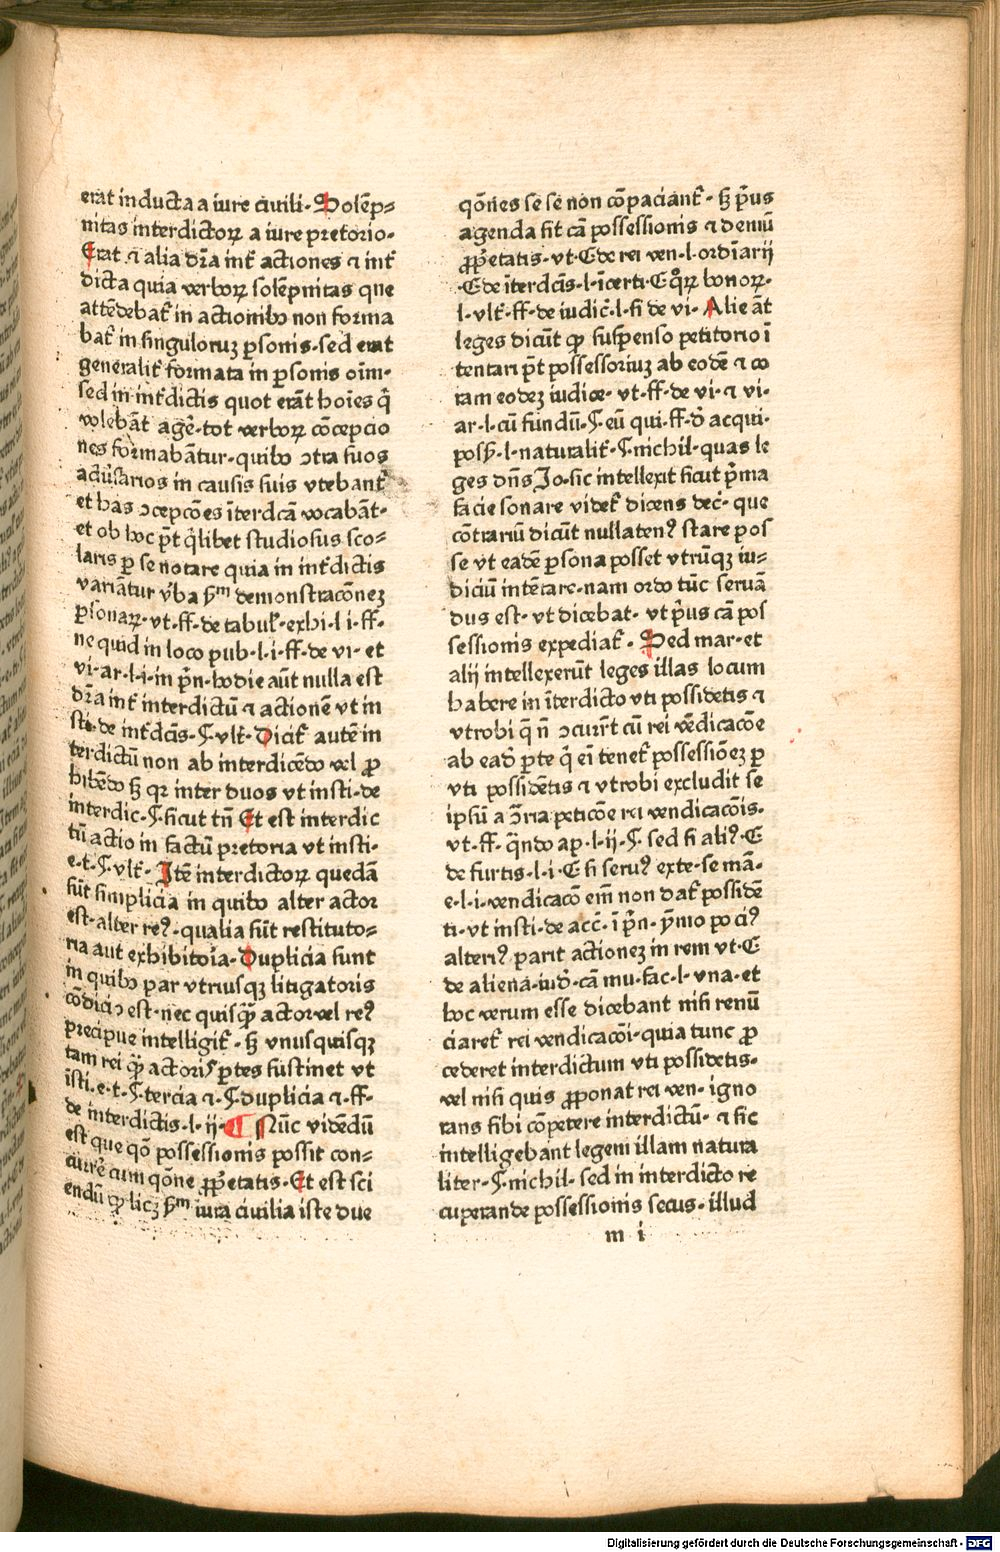 erat inducta a iure ciuili· Solẽp⸗
nitas interdictoꝝ a iure pretorio·
Erat ⁊ alia dr̃a int̃ actiones ⁊ int̃
dicta quia verboꝝ solẽpnitas que
attẽdebat̃ in actionibꝰ non forma
bat̃ in singuloruꝫ ꝑsonis·sed erat
generalit̃ formata in ꝑsonis oĩm·
sed in int̃dictis quot erãt hoĩes q̃
volebãt agẽ·tot verboꝝ cõcepcio
nes formabãtur·quibꝰ ꝯtra suos
aduẽsarios in causis suis vtebant̃
et has ꝯcepcões ĩterdcã vocabãt·
et ob hoc p̃t q̃libet studiosus sco⸗
laris ꝑ se notare quia in int̃dictis
variãtur v̾ba ẜm demonstracõneꝫ
ꝑsonaꝝ·vt·ff·de tabul̃·exhi·l i·ff·
ne quid in loco pub·l·i·ff·de vi· et
vi·ar·l·i·in pri̾n·hodie aũt nulla est
dr̃a int̃ interdictũ ⁊ actionẽ vt in
sti·de int̃dcĩs·§·vlt̃· Dicit̃ autẽ in
terdictũ non ab interdicẽdo vel ꝓ
hibẽdo ẜ qꝛ inter duos vt insti·de
interdic·§·sicut tñ Et est interdic
tũ actio in factũ pretoria vt insti·
e·t·§·vlt̃· Itẽ interdictoꝝ quedã
sũt simplicia in quibꝰ alter actor
est·alter reꝰ·qualia sũt restituto⸗
ria aut exhibitoĩa· Duplicia sunt
in quibꝰ par vtriusqꝫ litigatoris
cõdiciꝰ est·nec quisqꝫ̃ actor vel reꝰ
precipue intelligit̃·ẜ vnusquisqꝫ
tam rei qꝫ̃ actoris ꝑtes sustinet vt
ĩsti·e·t·§·tercia ⁊·§·duplicia ⁊·ff·
de interdictis·l·ij· ¶ Nũc vidẽdũ
est que qõ possessionis possit con⸗
currẽ cum qõne ꝓp̃etatis· Et est sci
endũ ꝙ licꝫ ẜm iura ciuilia iste due
qõnes se se non cõpaciant̃·ẜ p̃us
agenda sit cã possessionis ⁊ demũ
ꝓp̃etatis·vt·C de rei ven·l·ordĩarij
·C de ĩterdcĩs·l·ĩcerti·C q̊ꝝ bonoꝝ·
l·vlt̃·ff·de iudic̃·l·si de vi· Alie ãt
leges dicũt ꝙ suspenso petitorio ĩ
tentari p̃t possessoriuꝫ ab eodẽ ⁊ co
ram eodeꝫ iudice·vt·ff·de vi·⁊ vi·
ar·l·cũ fundũ·§·eũ qui·ff·d̾ acqui·
posẜ·l·naturalit̃·§·nichil·quas le
ges dñs Jo·sic intellexit sicut p̃ma
facie sonare videt̃ dicens dec̃·que
cõtrariũ dicũt nullatenꝰ stare pos
se vt eadẽ ꝑsona posset vtrũqꝫ iu⸗
diciũ intẽtare·nam ordo tũc seruã
dus est·vt dicebat·vt p̃us cã pos
sessionis expediat̃· Sed mar·et
alij intellexerũt leges illas locum
habere in ĩterdicto vti possidetis ⁊
vtrobi q̃ ñ ꝯcurr̃t cũ rei vẽdicacõe
ab ead̾ ꝑte q̃ ei tenet̃ possessiõeꝫ ꝑ
vti possidẽtis ⁊ vtrobi excludit se
ipsũ a ꝯr̃ia peticõe rei vendicacõis·
vt·ff·q̃ndo ap·l·ij·§·sed si aliꝰ·C
de furtis·l·i·C si seruꝰ exte·se mã·
e·l·i·vendicacõ eĩm non dat̃ possidẽ
ti·vt insti·de acc̃·ĩ pri̾n·ỹmo po ciꝰ
alteriꝰ parit actioneꝫ in rem vt·C
de aliena·iud̾·cã mu·fac·l·vna·et
hoc verum esse dicebant nisi renũ
ciaret̃ rei vendicacõi·quia tunc ꝓ
cederet interdictum vti possidetis·
vel nisi quis ꝓponat rei ven·igno
rans sibi cõpetere interdictũ·⁊ sic
intelligebant legem illam natura
liter·§·nichil·sed in interdicto re
cuperande possessionis secus·illud
m i
Digitalisierung gefördert durch die Deutsche Forschungsgemeinschaft - DFG